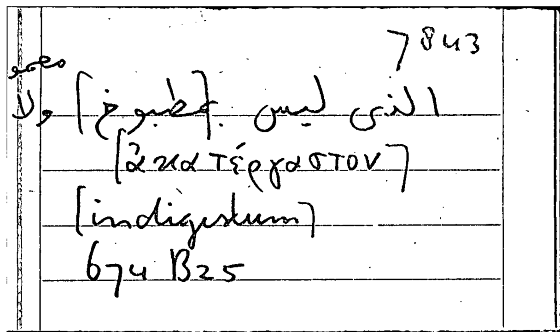 7843
الذى ليس [بمطبوخ] ولا
[ἀκατέργαστον]
[indigestum]
674 B25